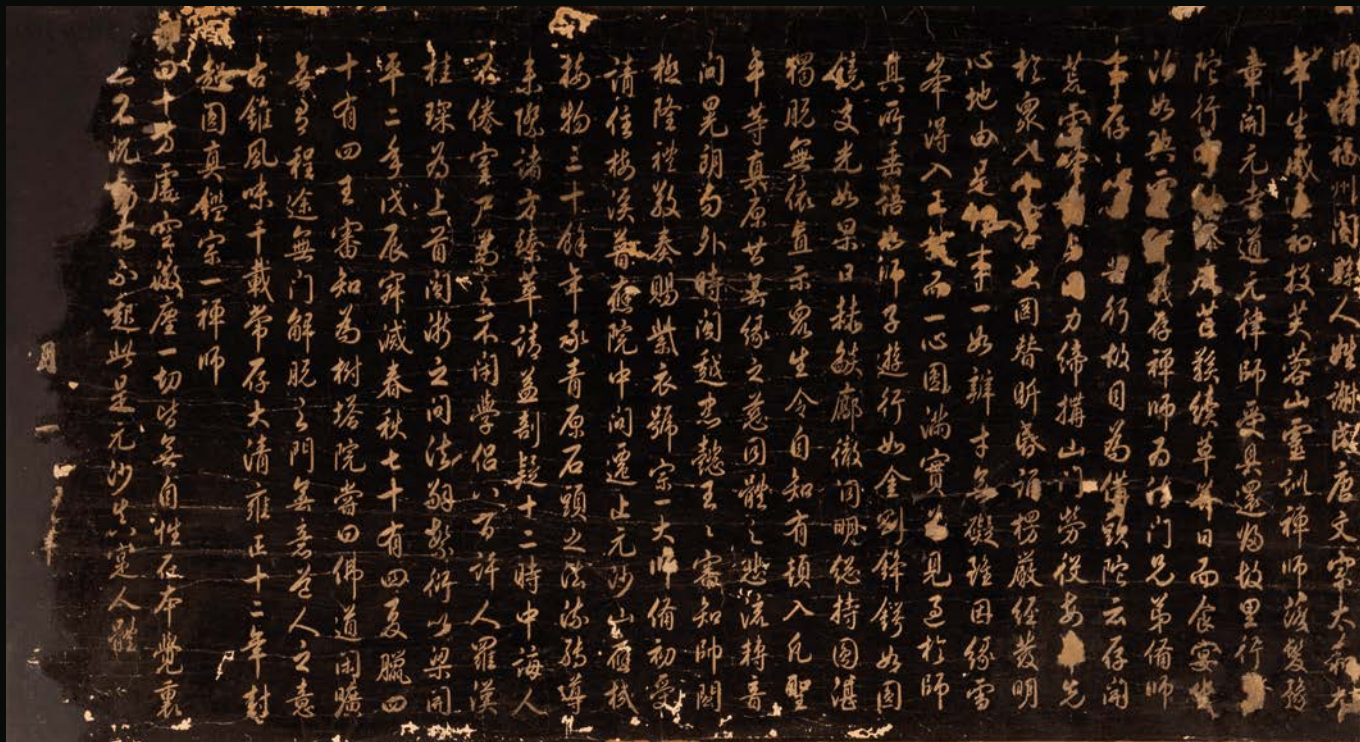 備福州閩縣人姓謝唐文宗大和
年生咸通初投芙蓉山靈訓禪師落髮豫
章開元寺道元律師受具還歸故里行
陀行芒鞵續草并日而食宴坐
泊如與雪義存禪師為法門兄弟備師
事存苦行故目為備頭陀云存開
荒雪力締搆山門勞役每先
於衆入罔替昕昏誦楞嚴經發明
心地由是事一如辯才無礙隨因緣雪
峯得入王而一心圓滿實為見過於師
其所垂語如師子遊行如金剛鋒鍔如圓
鏡交光如杲日廓徹洞明總持圓湛
獨脫無依直示衆生令自知有頓入凡聖
平等真原無緣之慈同體之悲流轉音
問晃朗句外時閩越忠懿王王審知帥閩
極隆禮敬奏賜紫衣號宗一大師備初受
請住梅溪普應院中間遷止元沙山應機
接物三十餘年承青原石頭之法流轉導
未際諸方臻萃請益剖疑十二時中誨人
不倦室戶為之不閉學侶八百許人羅漢
桂琛為上首閩浙之間法嗣繁衍以梁開
平二年戊辰寂滅春秋七十有四夏臘四
十有四王審知為樹塔院嘗曰佛道閒曠
無有程途無門解脫之門無意道人之意
古錐風味千載常存大清雍正十二年封
超圓真鑑宗一禪師
贊曰十方虛空微塵一切皆無自性在本覺裏
不沉此是元沙人體
月一年